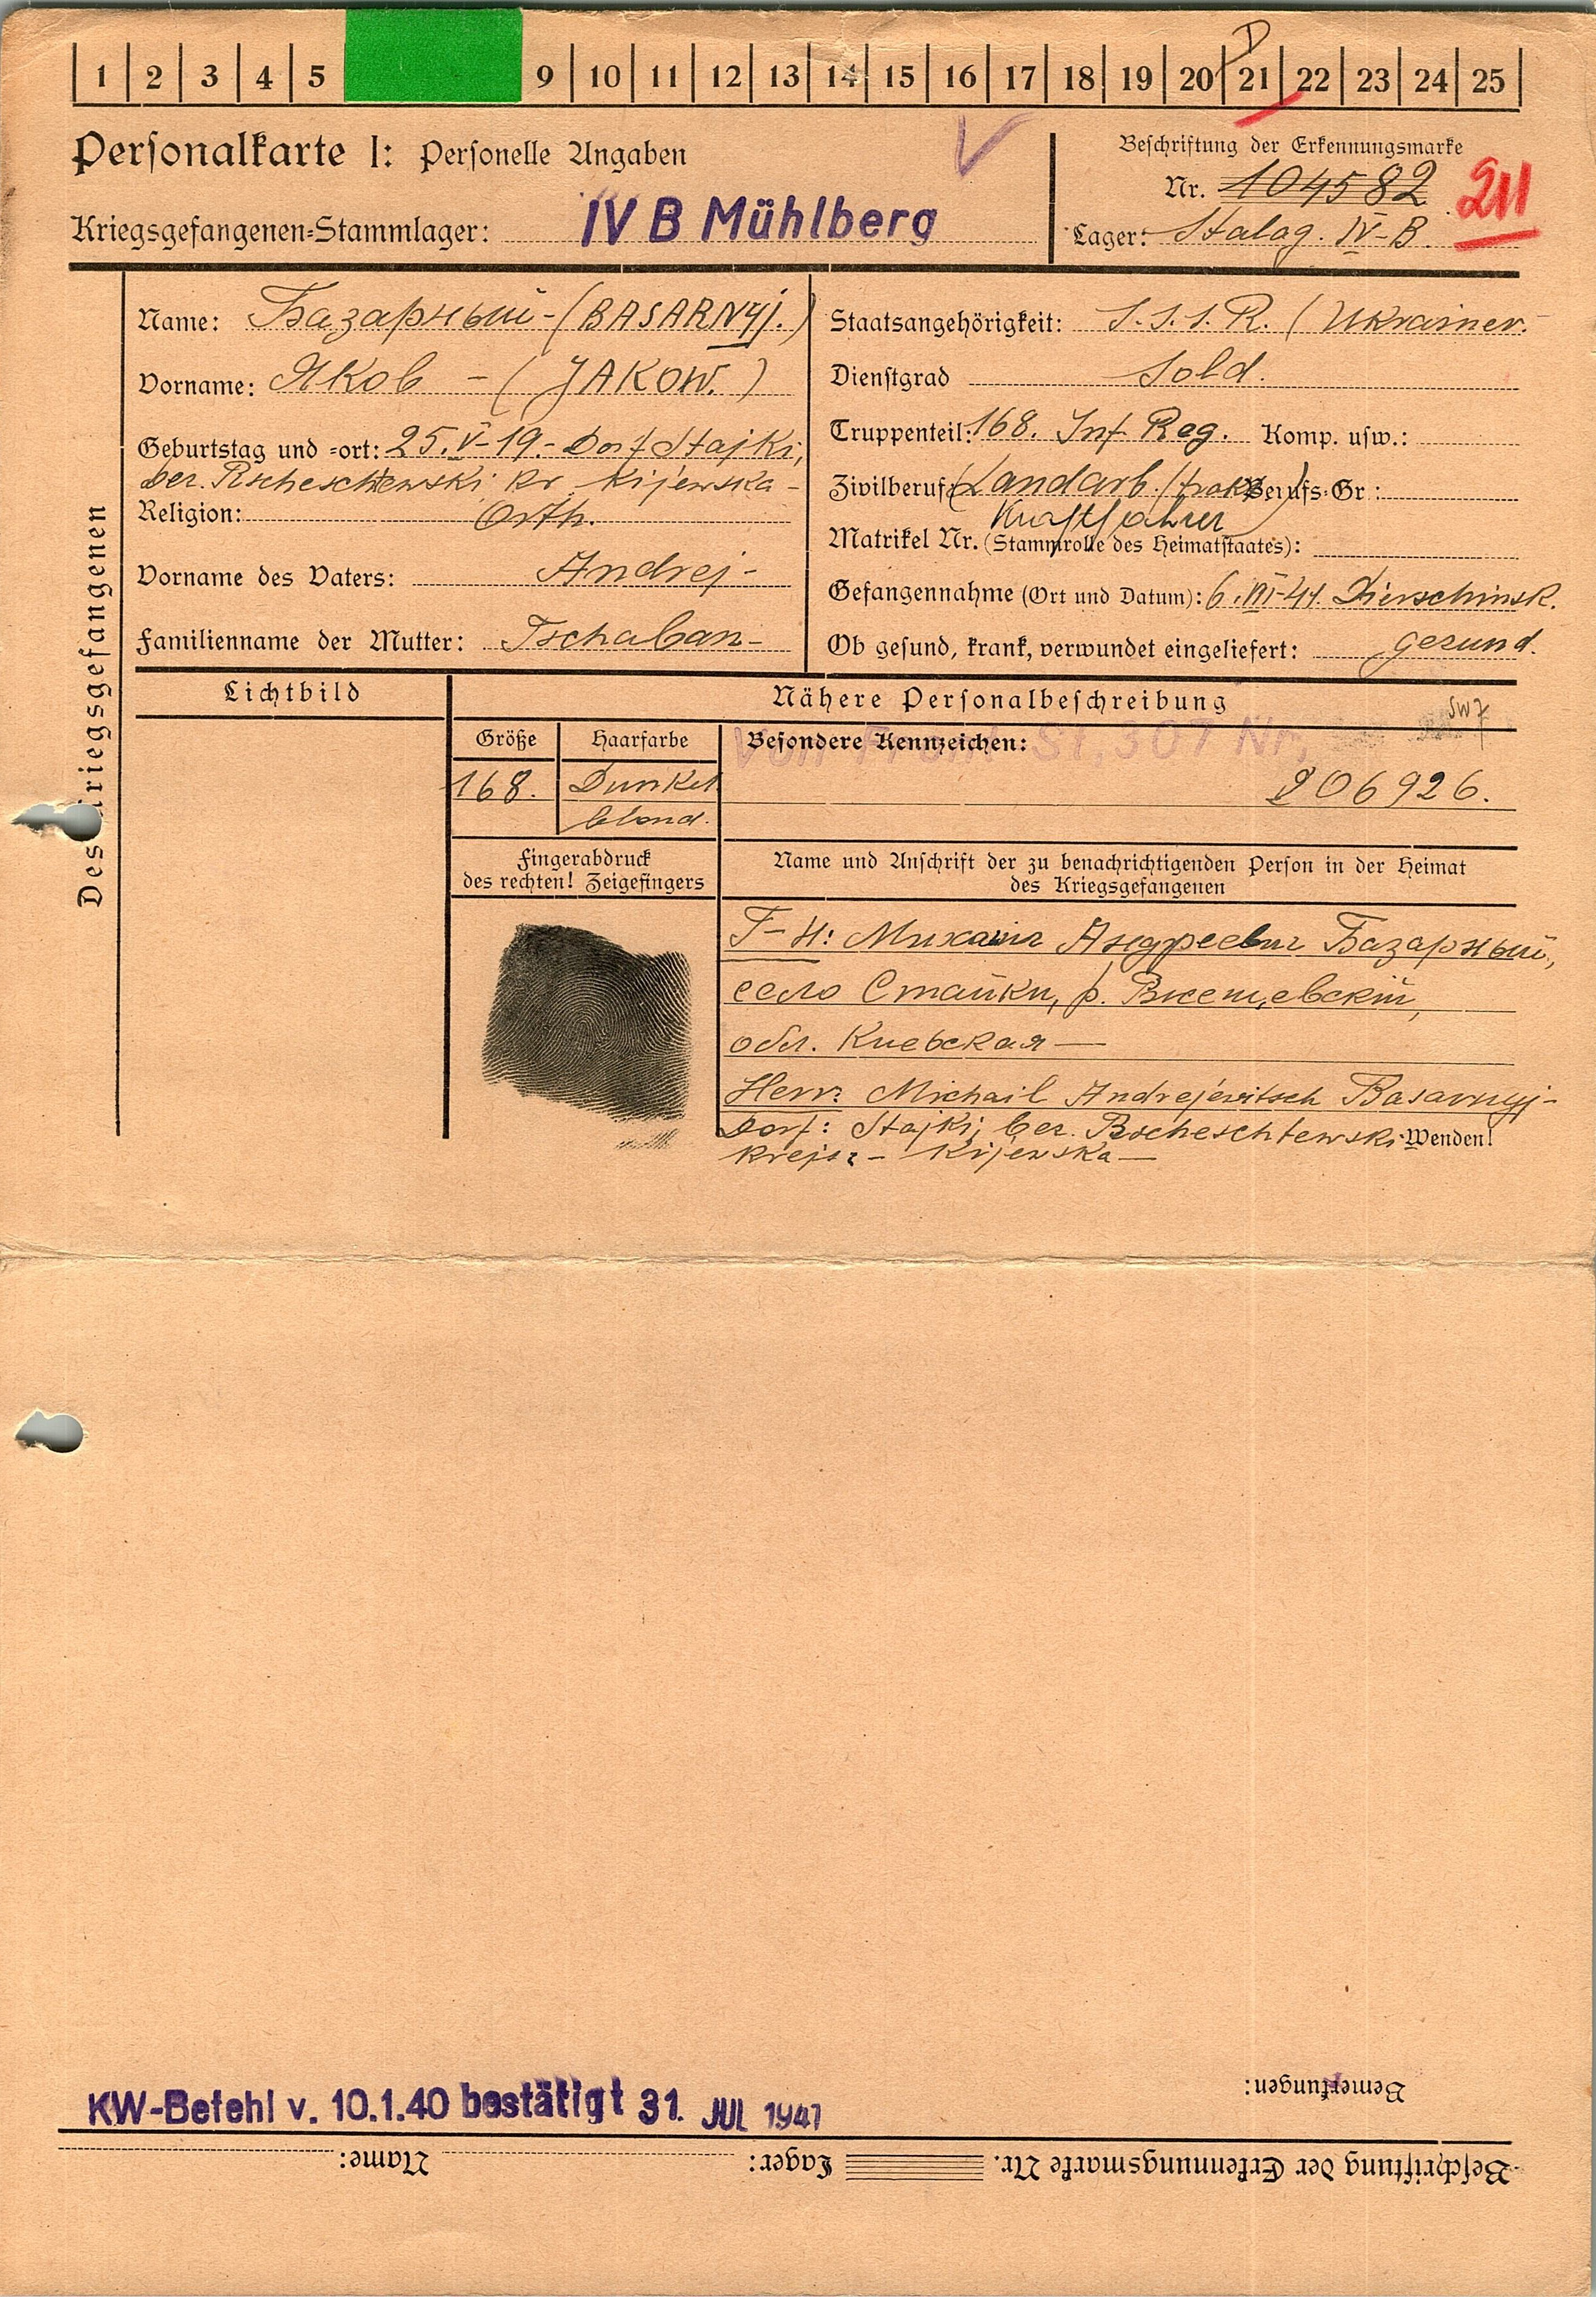 1 2 3 4 5 9 10 11 12 13 14 15 16 17 18 19 20 21 22 23 24 25
D
Personalkarte I: Personelle Angaben
Beschriftung der Erkennungsmarke
Nr. 104582
211
Kriegsgefangenen-Stammlager: IV B Mühlberg
Lager: Stalag. IV-B.
Des Kriegsgefangenen
Name: Базарный - (BASARNYJ.)
Vorname: Яков - (JAKOW.)
Geburtstag und -ort: 25.V-19.- Dorf Stajki,
ber. Rscheschtewski Kr. Kijewska -
Religion: Orth.
Vorname des Vaters: Andrej -
Familienname der Mutter: Tschaban -
Staatsangehörigkeit: S.S.S.R. (Ukrainer.
Dienstgrad Sold.
Truppenteil: 168. Inf. Reg. Komp. usw.:
Zivilberuf: (Landarb. Berufs-Gr.:
Kraftfahrer)
Matrikel Nr. (Stammrolle des Heimatstaates):
Gefangennahme (Ort und Datum): 6.VII-41. Dierschinsk.
Ob gesund, krank, verwundet eingeliefert: gesund.
Lichtbild
Nähere Personalbeschreibung
SW7
Größe
Haarfarbe
Besondere Kennzeichen:
Von Front St. 307 Nr.
168.
Dunkel
blond.
206926.
Fingerabdruck
des rechten! Zeigefingers
Name und Anschrift der zu benachrichtigenden Person in der Heimat
des Kriegsgefangenen
Г-н: Михаил Андреевич Базарный,
село Стайки, р.
обл. Киевская —
Herr: Michail Andrejewitsch Basarnyj -
Dorf: Stajki, ber. Rscheschtewski
Wenden!
Krejs: - Kijewska —
KW-Befehl v. 10.1.40 bestätigt 31. JUL 1941
Bemerkungen:
Beschriftung der Erkennungsmarke Nr. Lager: Name: